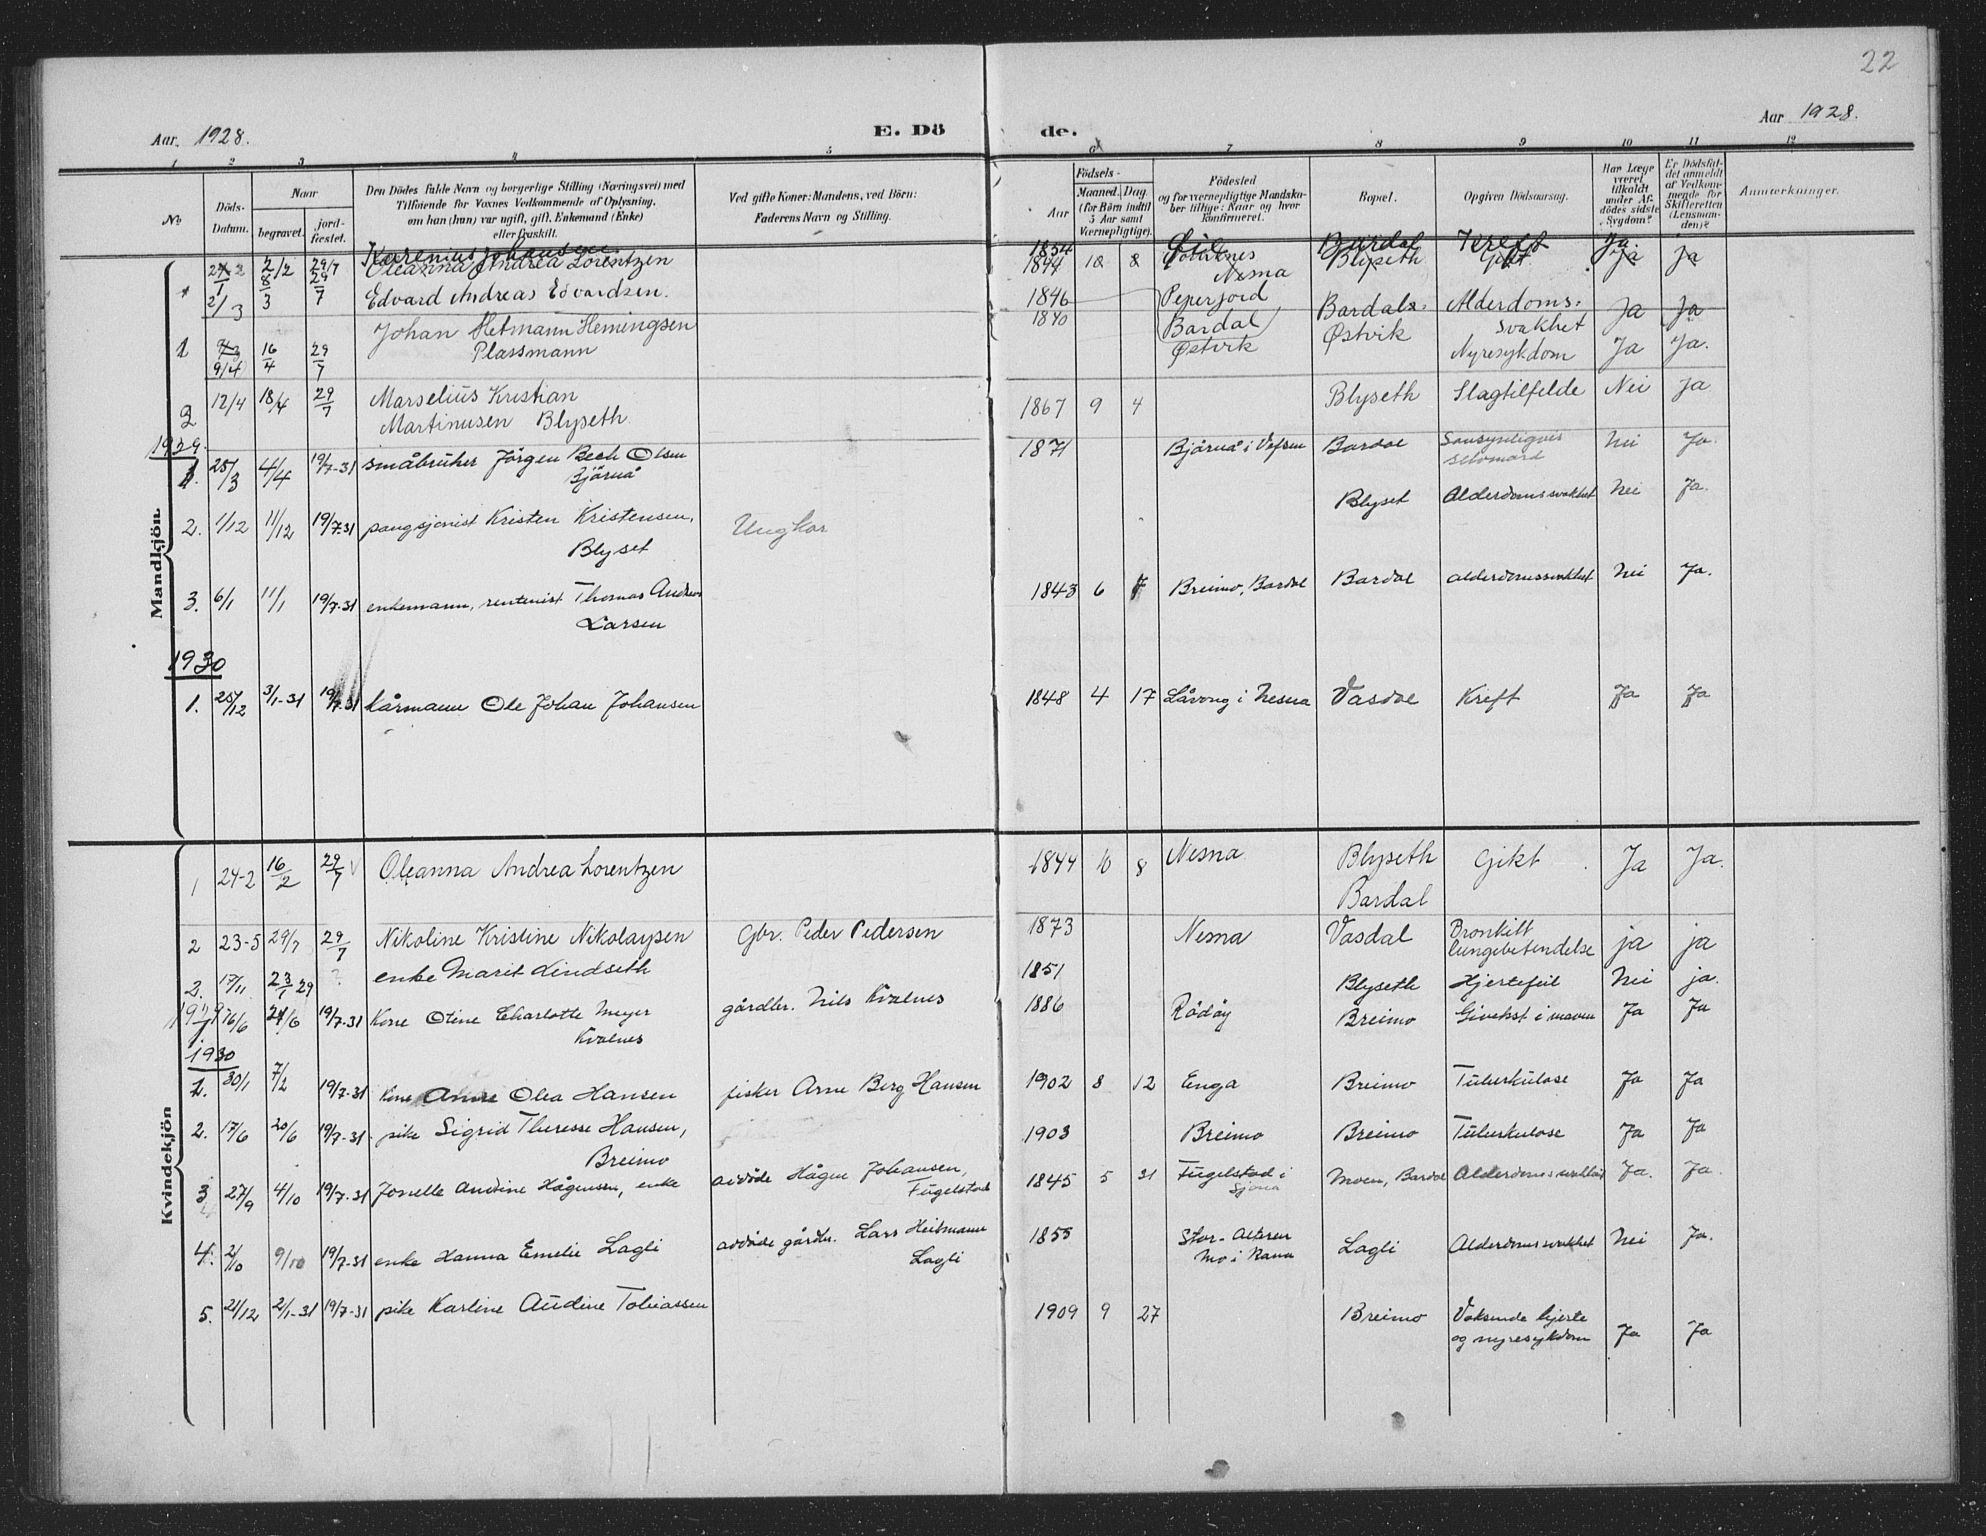 22
Aar. 1928. E. Dö de. Aar 1928.
1 2 3 4 5 6 7 8 9 10 11 12
No Döds-Datum. Naar begravet. jord-fæstet. Den Dödes fulde Navn og borgerlige Stilling (Næringsvei) med Tilføiende for Voxnes Vedkommende af Oplysning, om han (hun) var ugift, gift, Enkemand (Enke) eller fraskilt. Ved gifte Koner: Mandens, ved Börn: Faderens Navn og Stilling. Födsels- Aar Maaned. Dag. (for Börn indtil 5 Aar samt Værnepligtige). Födested og for værnepligtige Mandska-ber tillige: Naar og hvor konfirmeret. Bopæl. Opgiven Dödsaarsag. Har Læge været tilkaldt under Af-dödes sidste Sygdom? Er Dödsfal-det anmeldt af Vedkom-mende for Skifteretten (Lensman-den)? Anmærkninger.
Mandkjön
Karenius Johansen 1854 Bardal Kreft Ja
2/2 29/7 Oleanna Andrea Lorentzen 1844 10 8 Nesna Blyseth Gikt Ja Ja
2/3 8/3 29/7 Edvard Andreas Edvardsen. 1846 Peperjord Bardal Bardals- Alderdoms-svakhet Ja Ja
1 9/4 16/4 29/7 Johan Hetmann Hemingsen Plassmann 1840 Østvik Østvik Nyresykdom Ja Ja.
2 12/4 18/4 29/7 Marselius Kristian Martinusen Blyseth. 1867 9 4 Blyseth Slagtilfelde Nei Ja
1929.
1. 25/3 4/4 19/7-31 småbruker Jörgen Bech Olsen Bjärnå 1871 Bjårnå i Vefsen Bardal Sansynligvis selvmord Nei Ja.
2. 1/12 11/12 19/7-31 pangsjonist Kristen Kristensen, Blyset Ungkar Blyset Alderdomssvakhet Nei Ja.
3. 6/1 11/1 19/7-31 enkemann, rentenist Thomas Andreas Larsen 1843 6 7 Breimo, Bardal Bardal alderdomssvakhet Nei Ja.
1930
1. 25/12 3/1-31 19/7-31 kårmann Ole Johan Johansen 1848 4 17 Låvong i Nesna Vasdal Kreft Ja Ja
Kvindekjön
1 24-2 16/2 29/7 Oleanna Andrea Lorentzen 1844 10 8 Nesna Blyseth Bardal Gikt Ja Ja.
2 23-5 29/7 29/7 Nikoline Kristine Nikolaysen Gbr. Peder Pedersen 1873 Nesna Vasdal Bronkitt lungebetendelse ja ja
2. 17/11 23/1 29 ? enke Marit Lindseth 1851 Blyseth Hjertefeil Nei ja.
16/6 24/6 19/7-31 Kone Otine Charlotte Meyer Kvalnes gårdbr. Nils Kvalnes 1886 Rödöy Breimo Givekst i maven Ja Ja
1930
1. 30/1 7/2 19/7-31 Kone Anna Olea Hansen fisker Arne Berg Hansen 1902 8 12 Enga Breimo Tuberkulose Ja Ja
2. 17/6 20/6 19/7-31. pike Sigrid Therese Hansen, Breimo 1903 Breimo Breimo Tuberkulose Ja Ja
3 27/9 4/10 19/7-31 Jonelle Andine Hågensen, enke avdøde Hågen Johansen, Fugelstad 1845 5 31 Fugelstad i Sjona Moen, Bardal Alderdomssvakhet Ja. Ja.
4. 2/10 9/10 19/7-31 enke Hanna Emelie Lagli avdøde gårdbr. Lars Heitmann Lagli 1855 Stor-Alteren Mo i Rana Lagli Alderdomssvakhet Nei Ja.
5. 21/12 2/1-31 19/7-31 pike Karline Audine Tobiassen 1909 9 27 Breimo Voksende hjerte og nyresykdom Ja Ja